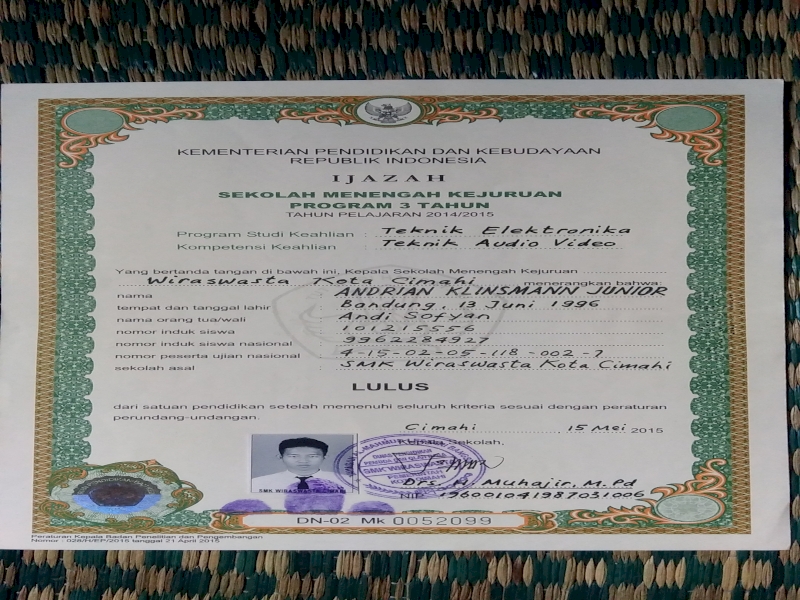 KEMENTERIAN PENDIDIKAN DAN KEBUDAYAAN
REPUBLIK INDONESIA
IJAZAH
SEKOLAH MENENGAH KEJURUAN
PROGRAM 3 TAHUN
TAHUN PELAJARAN 2014/2015
Program Studi Keahlian : Teknik Elektronika
Kompetensi Keahlian : Teknik Audio Video
Yang bertanda tangan di bawah ini, Kepala Sekolah Menengah Kejuruan
Wiraswasta Kota Cimahi menerangkan bahwa:
nama : ANDRIAN KLINSMANN JUNIOR
tempat dan tanggal lahir : Bandung, 13 Juni 1996
nama orang tua/wali : Andi Sofyan
nomor induk siswa : 101215556
nomor induk siswa nasional : 9962284927
nomor peserta ujian nasional : 4-15-02-05-118-002-7
sekolah asal : SMK Wiraswasta Kota Cimahi
LULUS
dari satuan pendidikan setelah memenuhi seluruh kriteria sesuai dengan peraturan
perundang-undangan.
Cimahi, 15 Mei 2015
Kepala Sekolah,
SMK WIRASWASTA
Drs. H. Muhajir, M.Pd
NIP 196001041987031006
SMK WIRASWASTA CIMAHI
DN-02 Mk 0052099
Peraturan Kepala Badan Penelitian dan Pengembangan
Nomor : 028/H/EP/2015 tanggal 21 April 2015